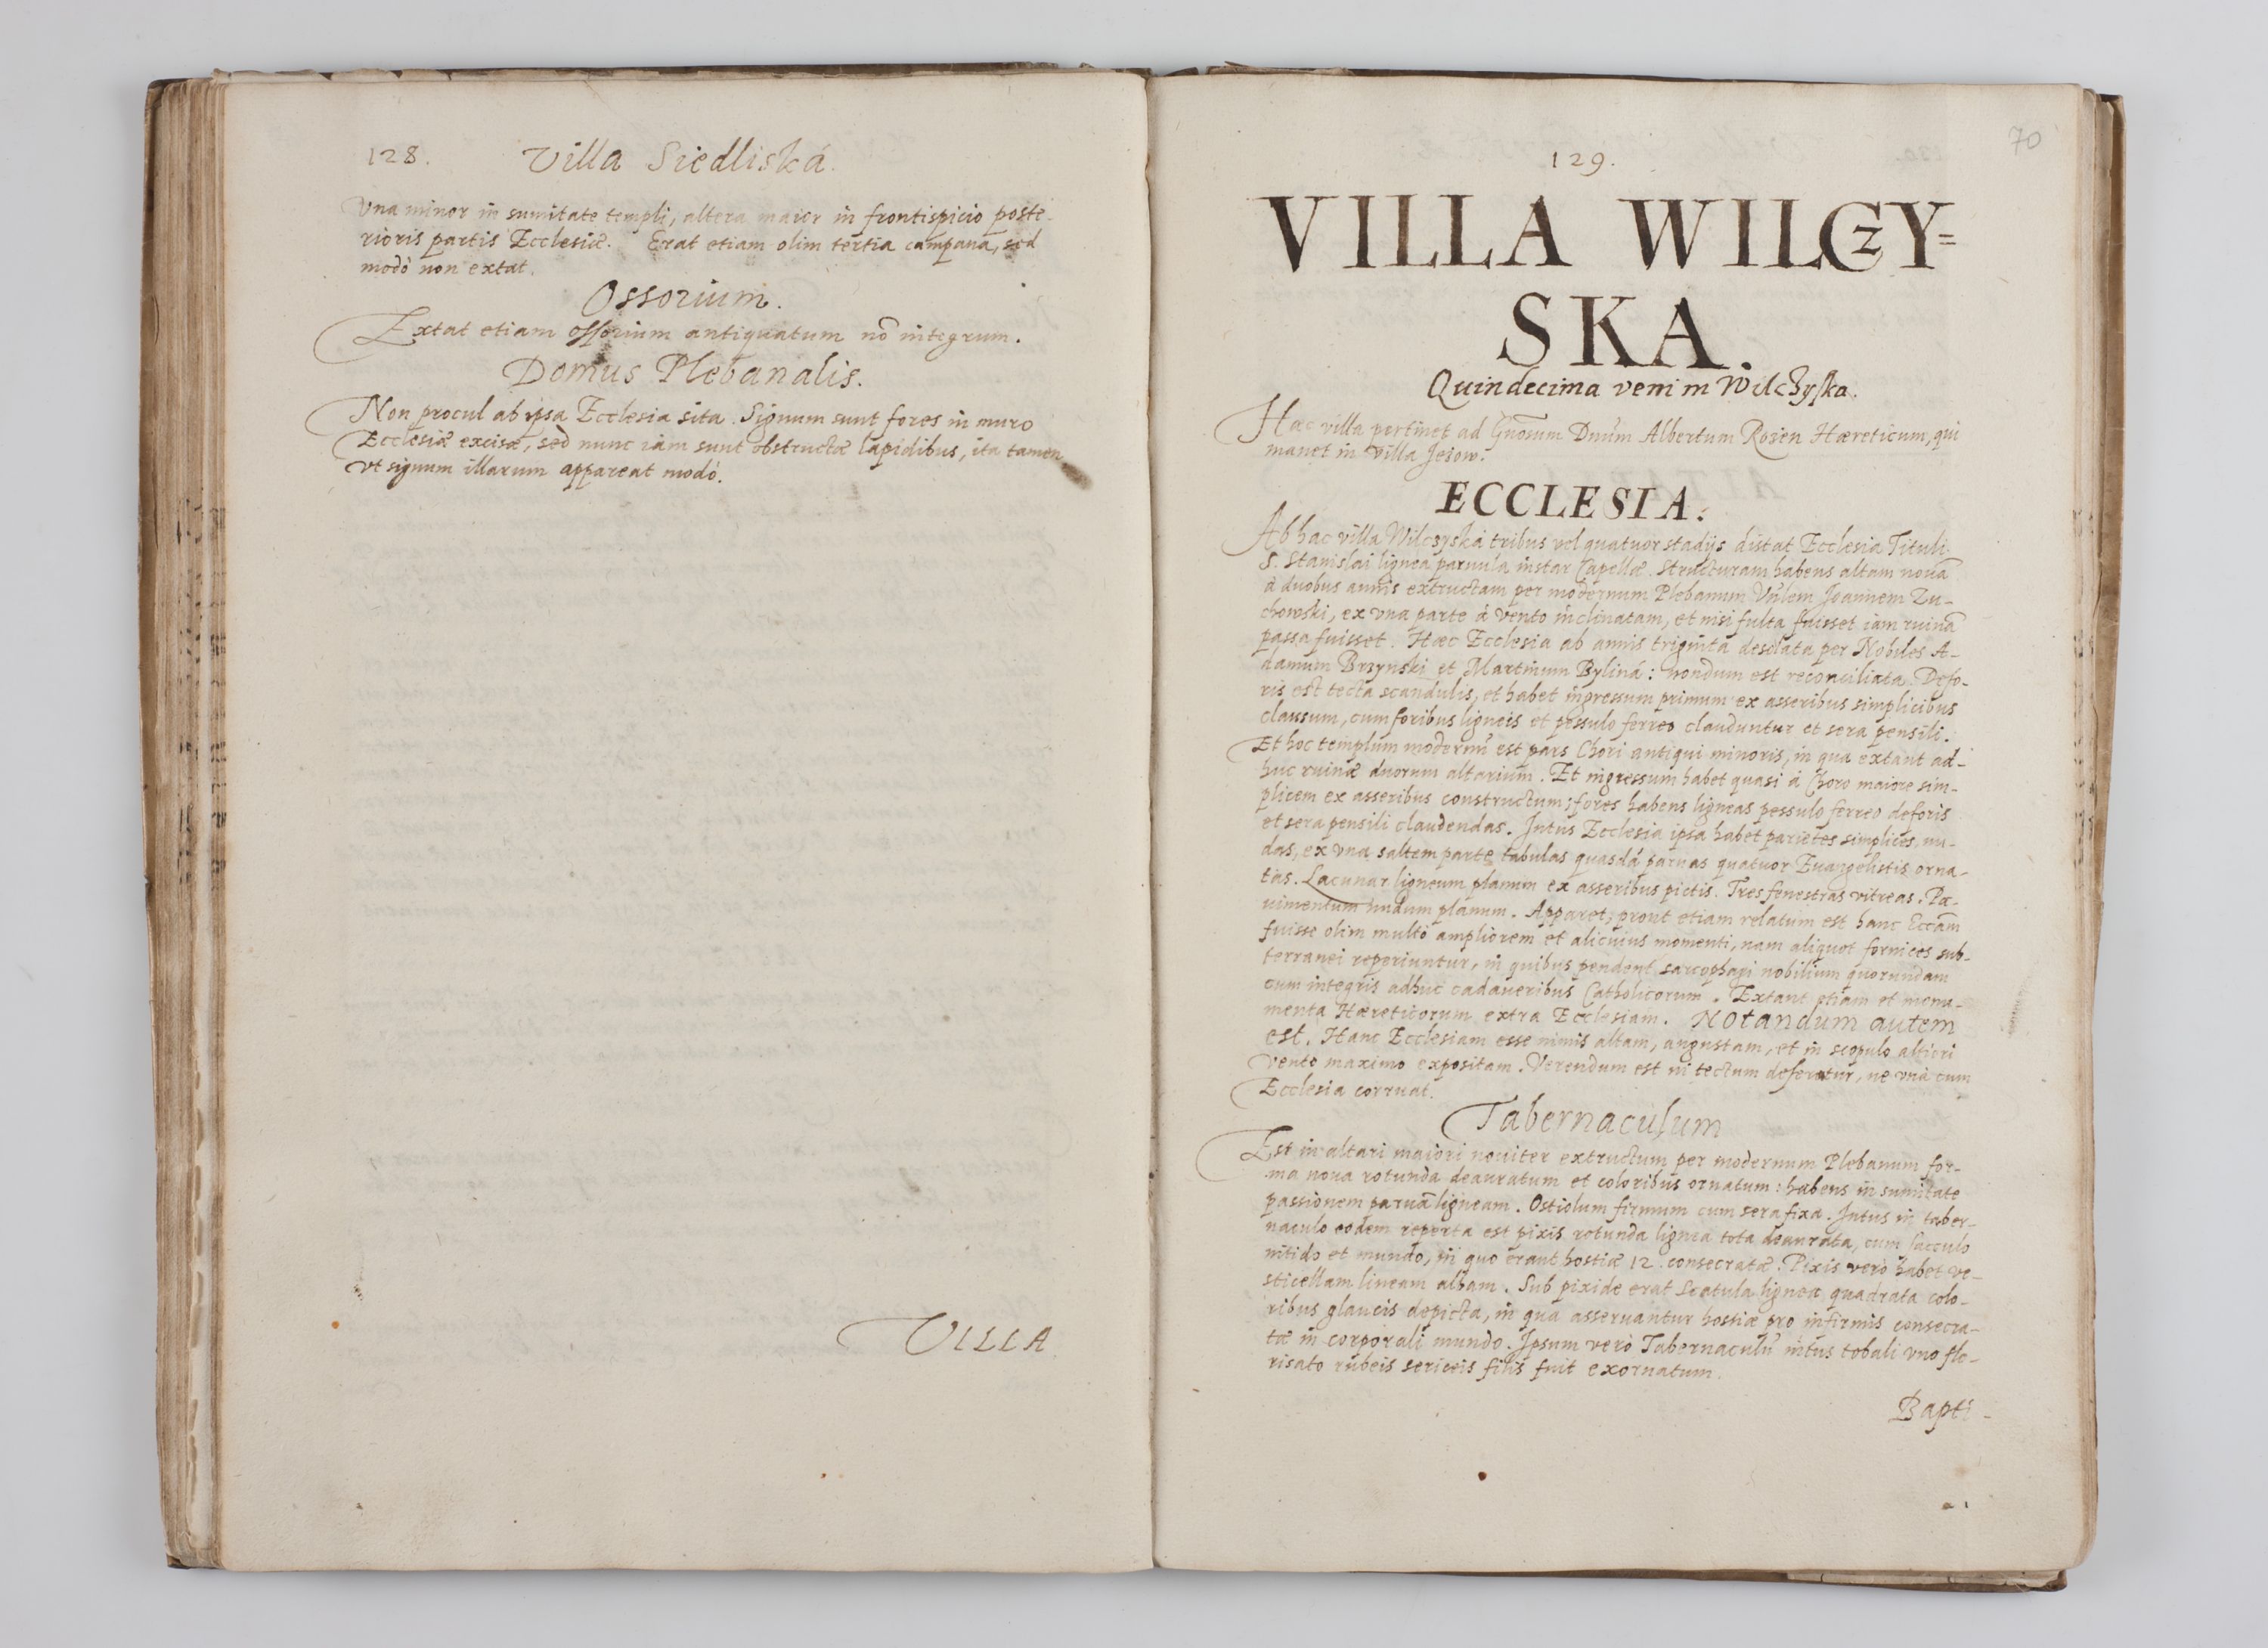 128. Villa Siedliská.
Vna minor in sumitate templi, altera maior in frontispicio poste-
rioris partis Ecclesiæ. Erat etiam olim tertia campana, sed
modò non extat.
Ossorium.
Extat etiam ossorium antiquatum nō integrum.
Domus Plebanalis.
Non procul ab ipsa Ecclesia sita. Signum sunt fores in muro
Ecclesiæ excisæ, sed nunc iam sunt obstructæ lapidibus, ita tamen
vt signum illarum appareat modò.
VILLA
70
129.
VILLA WILCZY=
SKA.
Quindecima veni in Wilchyska.
Hæc villa pertinet ad Gnosum Dnum Albertum Rozen Hæreticum, qui
manet in villa Jezow.
ECCLESIA.
Ab hac villa Wilczyská tribus vel quatuor stadijs distat Ecclesia Tituli
S. Stanislai lignea paruula instar Capellæ. Structuram habens altam nouā
à duobus annis extructam per modernum Plebanum Vnlem Joannem Zu-
chowski, ex vna parte à vento inclinatam, et nisi fulta fuisset iam ruinā
passa fuisset. Hæc Ecclesia ab annis triginta desolata per Nobiles A-
damum Brzynski et Martinum Byliná: nondum est reconciliata. Defo-
ris est tecta scandulis, et habet ingressum primum ex asseribus simplicibus
clausum, cum foribus ligneis et pessulo ferreo clauduntur et sera pensili.
Et hoc templum modernū est pars Chori antiqui minoris, in qua extant ad-
huc ruinæ duorum altarium. Et ingressum habet quasi à Choro maiore sim-
plicem ex asseribus constructum; fores habens ligneas pessulo ferreo deforis
et sera pensili claudendas. Intus Ecclesia ipsa habet parietes simplices, nu-
das, ex vna saltem parte tabulas quasdā paruas quatuor Euangelistis orna-
tas. Lacunar ligneum planum ex asseribus pictis. Tres fenestras vitreas. Pa-
uimentum nudum planum. Apparet, prout etiam relatum est hanc Eccām
fuisse olim multò ampliorem et alicuius momenti, nam aliquot fornices sub-
terranei reperiuntur, in quibus pendent sarcophagi nobilium quorundam
cum integris adhuc cadaueribus Catholicorum. Extant etiam et monu-
menta Hæreticorum extra Ecclesiam. Notandum autem
est. Hanc Ecclesiam esse nimis altam, angustam, et in scopulo altiori
vento maximo expositam. Verendum est ni tectum deferatur, ne vnà cum
Ecclesia corruat.
Tabernaculum
Est in altari maiori nouiter extructum per modernum Plebanum for-
ma noua rotunda deauratum et coloribus ornatum: habens in sumitate
passionem paruā ligneam. Ostiolum firmum cum sera fixa. Intus in taber-
naculo eodem reperta est pixis rotunda lignea tota deaurata, cum sacculo
nitido et mundo, in quo erant hostiæ 12. consecratæ. Pixis verò habet ve-
sticellam lineam albam. Sub pixide erat Scatula lignea quadrata colo-
ribus glaucis depicta, in qua asseruantur hostiæ pro infirmis consecra-
tæ in corporali mundo. Ipsum verò Tabernaculū intus tobali vno flo-
risato rubeis sericeis filis fuit exornatum.
Bapti-